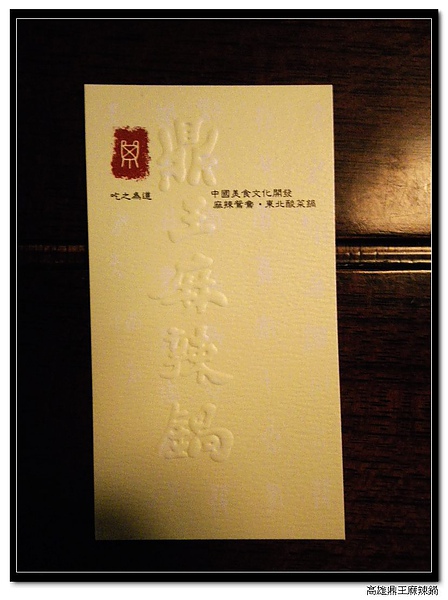 吃之為道
中國美食文化開發
麻辣鴛鴦·東北酸菜鍋
鼎王麻辣鍋
高雄鼎王麻辣鍋